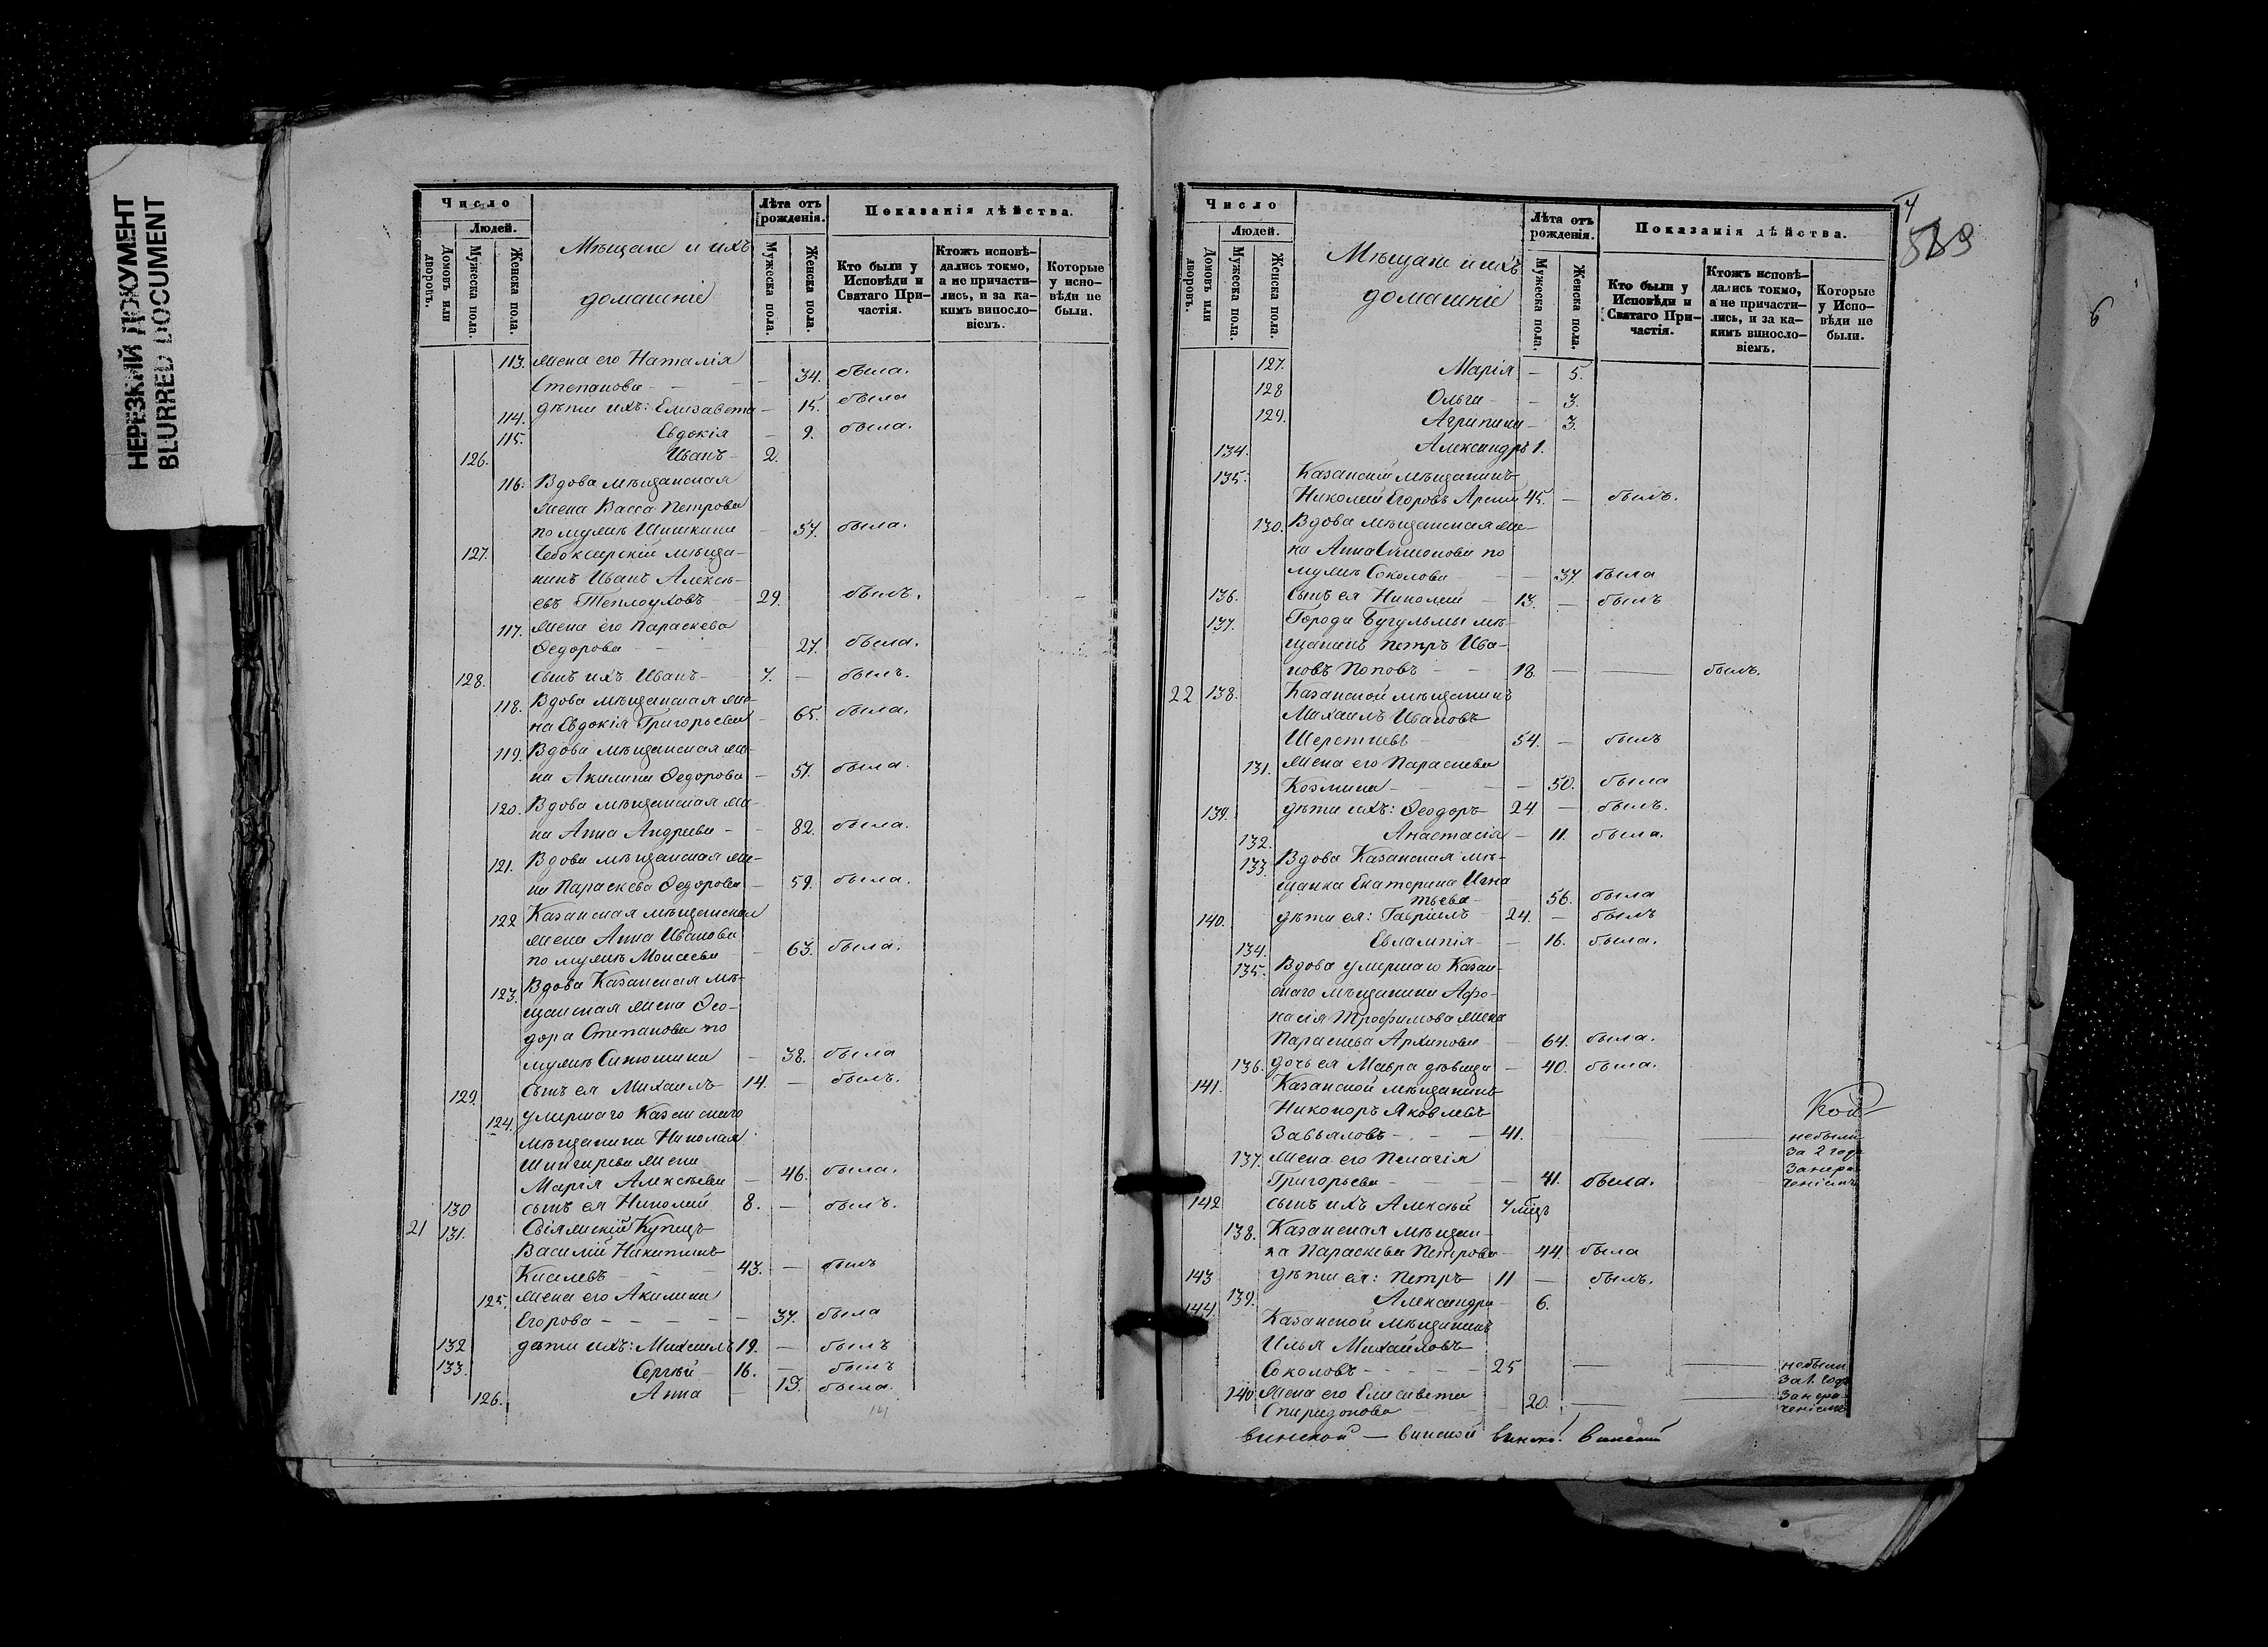 НЕРЕЗКИЙ ДОКУМЕНТ
BLURRED DOCUMENT
Число
Людей.
Домовъ или дворовъ.
Мужеска пола.
Женска пола.
Мѣщане и ихъ
домашніе
Лѣта отъ рожденія.
Мужеска пола.
Женска пола.
Показанія дѣйства.
Кто были у Исповѣди и Святаго Причастія.
Ктожъ исповѣдались токмо, а не причастились, и за какимъ винословіемъ.
Которые у исповѣди не были.
113. Жена его Наталія
Степанова - - 34. была.
114. дѣти ихъ: Елизавета - 15. была
115. Евдокія - 9. была.
126. Иванъ - 2.
116. Вдова мѣщанская
жена Васса Петрова
по мужѣ Шишкина - 57. была.
127. Чебоксарскій мѣща-
нинъ Иванъ Алексѣ-
евъ Теплоуховъ - 29. былъ.
117. Жена его Параскева
Ѳедорова - 27. была.
128. Сынъ ихъ Иванъ - 7. - былъ.
118. Вдова мѣщанская же-
на Евдокія Григорьева - 65. была.
119. Вдова мѣщанская же-
на Акилина Ѳедорова - 57. была.
120. Вдова мѣщанская же-
на Анна Андреева - 82. была.
121. Вдова мѣщанская же-
на Параскева Ѳедорова - 59. была.
122 Казанская мѣщанская
жена Анна Иванова
по мужѣ Моисеева - 63. была.
123. Вдова Казанская мѣ-
щанская жена Ѳео-
дора Степанова по
мужѣ Синюшина - 38. была
129. Сынъ ея Михаилъ 14. - былъ.
124. умершаго Казанскаго
мѣщанина Николая
жена
Марія Алексѣева - 46. была.
130 сынъ ея Николай 8. - былъ.
21 131. Свіяжскій Купецъ
Василій Никитинъ
Киселевъ 43. - былъ
125. Жена его Акилина
Егорова - - - - - 37. была
132 дѣти ихъ: Михаилъ 19. - былъ
133. Сергѣй - 16. - былъ
126. Анна - 13. была.
141
Число
Людей.
Домовъ или дворовъ.
Мужеска пола.
Женска пола.
Мѣщане и ихъ
домашніе
Лѣта отъ рожденія.
Мужеска пола.
Женска пола.
Показанія дѣйства.
Кто были у Исповѣди и Святаго Причастія.
Ктожъ исповѣдались токмо, а не причастились, и за какимъ винословіемъ.
Которые у Исповѣди не были.
6
127. Марія - 5.
128 Ольга - 3.
129. Агрипина - 3.
134. Александръ 1.
135. Казанскій мѣщанинъ
Николай Егоровъ 45. - былъ.
130. Вдова мѣщанская же-
на Анна Симонова по
мужѣ Соколова - 37 была
136. Сынъ ея Николай - 13. - былъ
137. Города Бугульмы мѣ-
щанинъ Петръ Ива-
новъ Поповъ - 18. - - былъ.
22 138. Казанской мѣщанинъ
Михаилъ Ивановъ
54. - былъ
131. Жена его Параскева
Козмина - - 50. была
139. дѣти ихъ: Ѳеодоръ 24 - былъ.
132. Анастасія - 11. была.
133. Вдова Казанская мѣ-
щанка Екатерина Игна
тьева - 56. была
140. дѣти ея: Гавріилъ 24. - былъ
134. Евлампія - 16. была.
135. Вдова умершаго Казан-
скаго мѣщанина Афо-
насія Трофимова жена
Параскева Архипова - 64. была.
136. дочь ея Мавра дѣвица - 40. была.
141. Казанской мѣщанинъ
Никоноръ Яковлевъ
Завьяловъ - - - 41.
небыли
за 2 года
за нера-
ченіемъ
137. Жена его Пелагія
Григорьева - - 41. была.
142 сынъ ихъ Алексѣй 7 мцъ
138. Казанская мѣщан-
ка Параскева Петрова - 44. была
143 дѣти ея: Петръ 11 - былъ.
139. Александра - 6.
144. Казанской мѣщанинъ
Илья Михайловъ
Соколовъ - - - 25
140. Жена его Елисавета
Спиридонова 20.
небыли
за 1. годъ
за нера-
ченіемъ